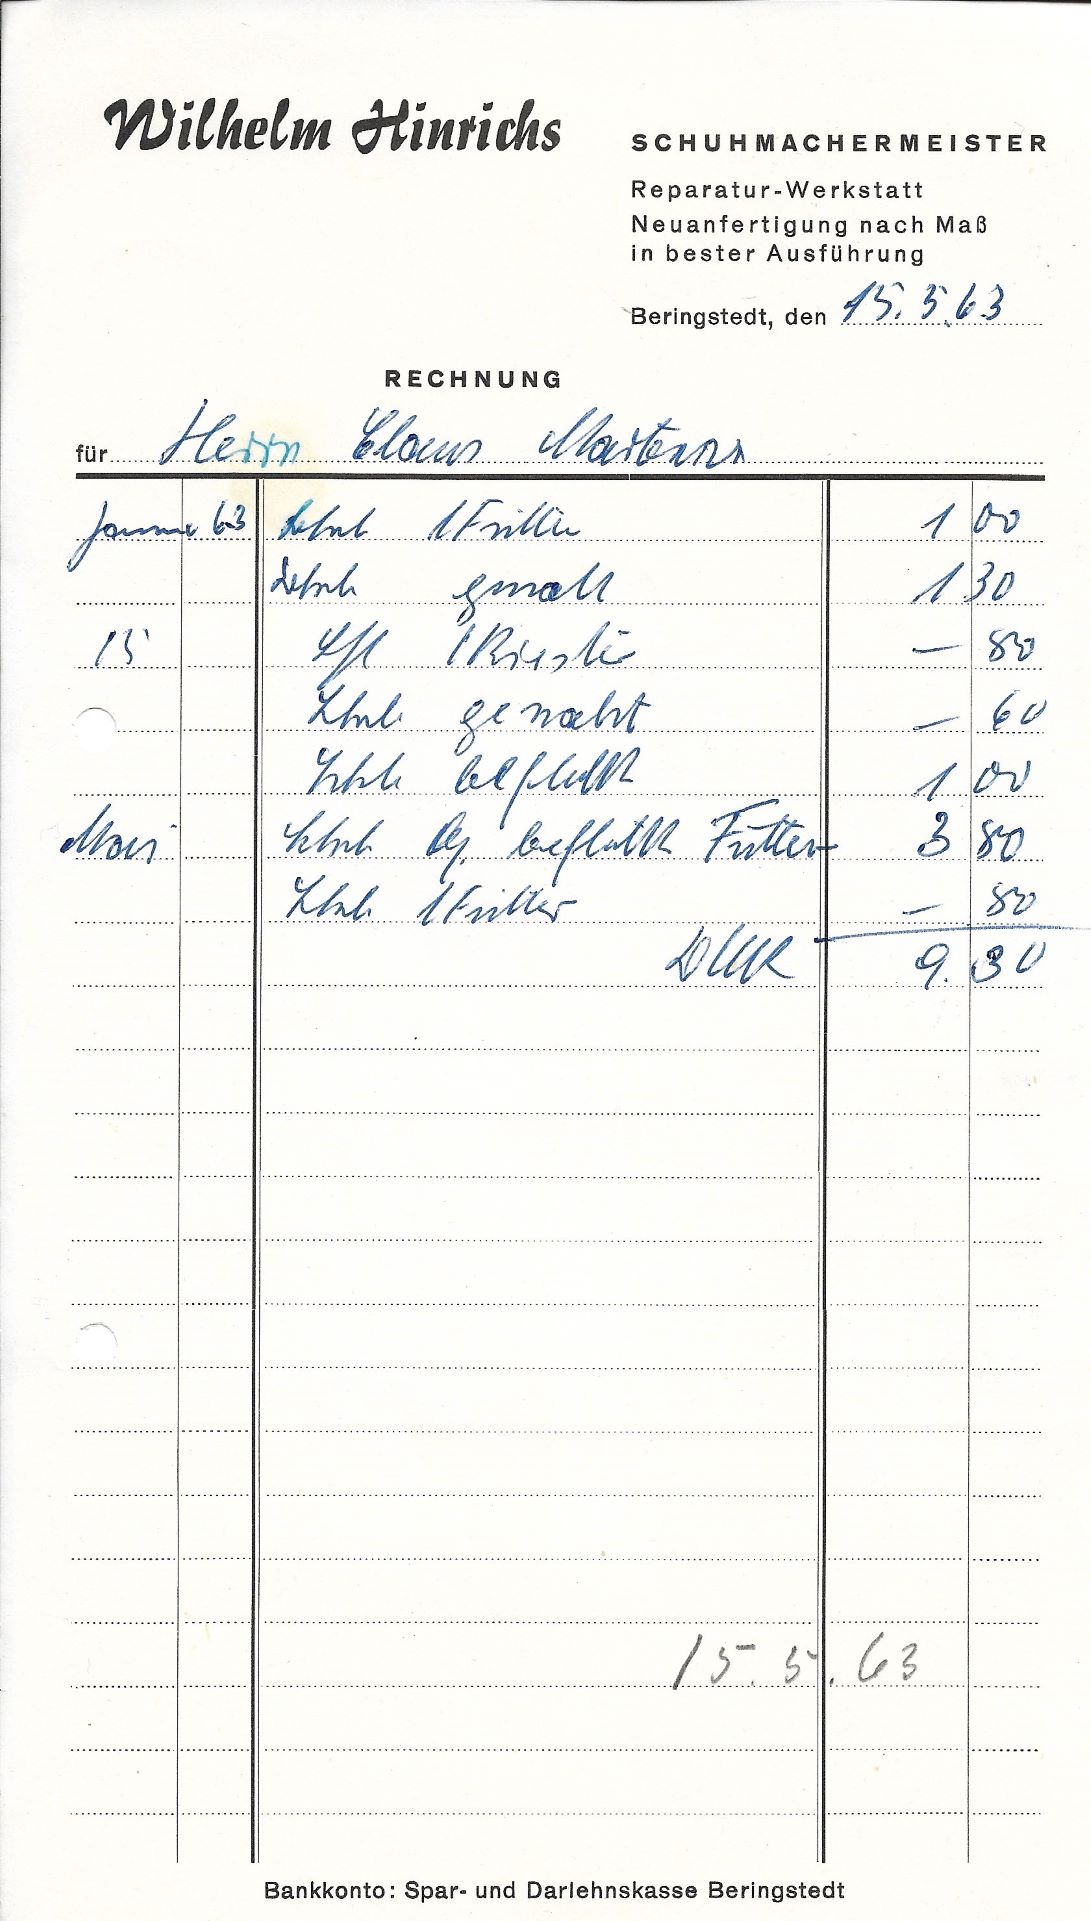 Wilhelm Hinrichs
SCHUHMACHERMEISTER
Reparatur-Werkstatt
Neuanfertigung nach Maß
in bester Ausführung
Beringstedt, den 15.5.63
RECHNUNG
für Herrn Claus Martens
63 1 Futter 1 00
1 30
15 1 Riester — 80
genäht — 60
1 00
Mai Futter 3 80
1 Futter — 80
DM 9.30
15.5.63
Bankkonto: Spar- und Darlehnskasse Beringstedt